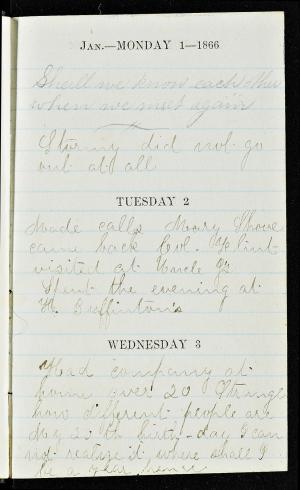 JAN.—MONDAY 1—1866
Shall we know each other
when we meet again
Stormy did not go
out at all
TUESDAY 2
Made calls Mary Shove
came back Col. Flint
visited at Uncle J's
Spent the evening at
N. Buffinton's
WEDNESDAY 3
Had company at
home over 20 Strange
how different people are
My 25th birth-day I can
not realize it where shall I
be a year hence